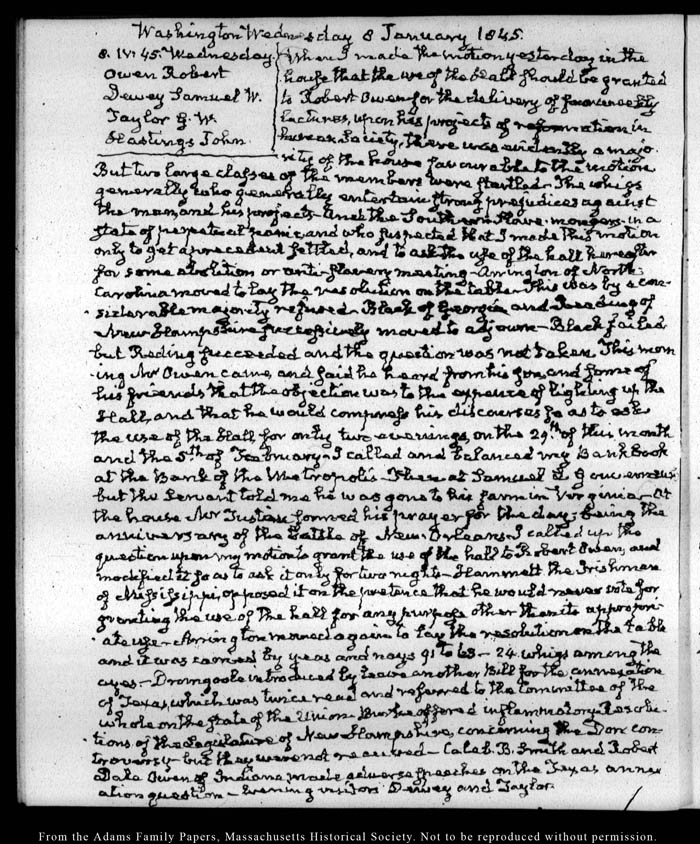 Washington Wednesday 8 January 1845.
8. IV: 45. Wednesday.
Owen Robert
Dewey Samuel W.
Taylor G. W.
Hastings John
When I made the motion yesterday in the
house that the use of the Hall should be granted
to Robert Owen for the delivery of four weekly
Lectures, upon his projects of reformation in
human Society, there was evidently a majo-
rity of the house favourable to the motion
But two large classes of the members were startled. The whigs
generally who generally entertain strong prejudices against
the man, and his projects and the Southern Slave-mongers in a
state of perpetual panic, and who suspected that I made this motion
only to get a precedent settled, and to ask the use of the hall hereafter
for some abolition or anti-slavery meeting—Arrington of North-
Carolina moved to lay the resolution on the table. This was by a con-
siderable majority refused. Black of Georgia and Reading of
New-Hampshire successively moved to adjourn—Black failed
but Reding succeeded and the question was not taken. This morn-
ing Mr Owen came, and said he heard from his son, and some of
his friends that the objection was to the expence of lighting up the
Hall, and that he would compress his discourses so as to ask
the use of the Hall for only two evenings, on the 29th of this month
and the 5th of February. I called and balanced my Bank Book
at the Bank of the Metropolis. Then at Samuel L Gouverneur's
but the Servant told me he was gone to his farm in Virginia—At
the house Mr Tustin formed his prayer for the day; being the
anniversary of the battle of New-Orleans. I called up the
question upon my motion to grant the use of the hall to Robert Owen, and
modified it so as to ask it only for two nights—Hammett the Irishman
of Mississippi, opposed it on the pretence that he would never vote for
granting the use of the hall for any purpose other than its appropri-
ate use—Arrington moved again to lay the resolution on the table
and it was carried by yeas and nays 91 to 63—24 whigs among the
ayes.—Dromgoole introduced by leave another Bill for the annexation
of Texas, which was twice read and referred to the Committee of the
whole on the state of the Union Burke offered inflammatory Resolu-
tions of the Legislature of New Hampshire, concerning the Dorr con-
troversy—but they were not received—Caleb B. Smith and Robert
Dale Owen of Indiana made adverse speeches on the Texas annex-
ation question—Evening visitors Dewey and Taylor.
From the Adams Family Papers, Massachusetts Historical Society. Not to be reproduced without permission.